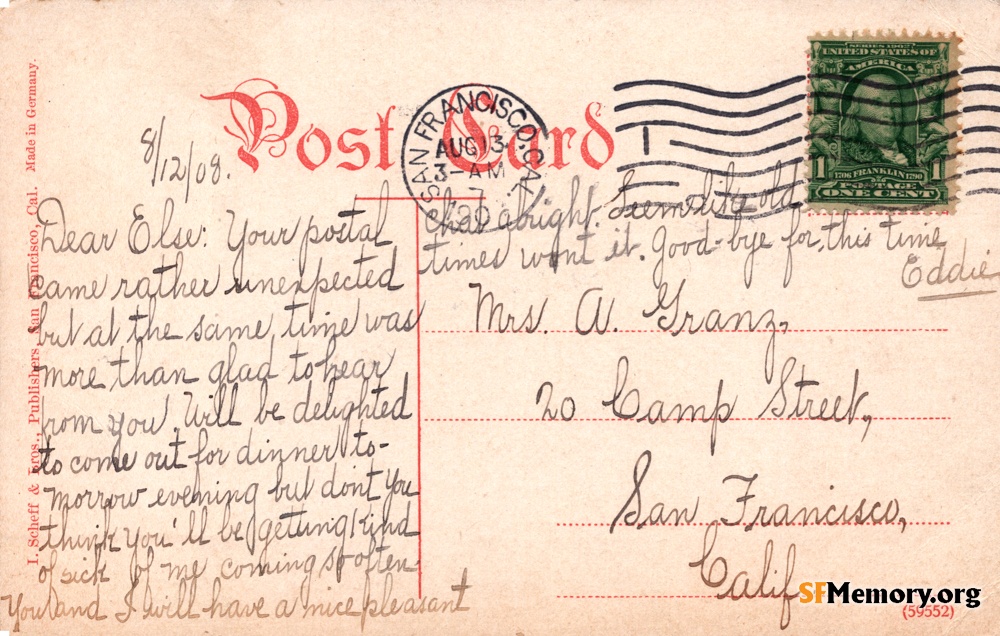 Post Card
SAN FRANCISCO, CAL.
AUG 13
3-AM
190
1
SERIES 1902
UNITED STATES OF
AMERICA
1706 FRANKLIN 1790
POSTAGE
1 ONE CENT 1
8/12/08.
Dear Else: Your postal
came rather unexpected
but at the same time was
more than glad to hear
from you. Will be delighted
to come out for dinner to-
morrow evening but dont you
think you'll be getting kind
of sick of me coming so often
You and I will have a nice pleasant
chat alright. Seem like old
times wont it. Good-bye for this time
Eddie
Mrs. A. Granz,
20 Camp Street,
San Francisco,
Calif
I. Scheff & Bros., Publishers, San Francisco, Cal. Made in Germany.
SFMemory.org
(59552)